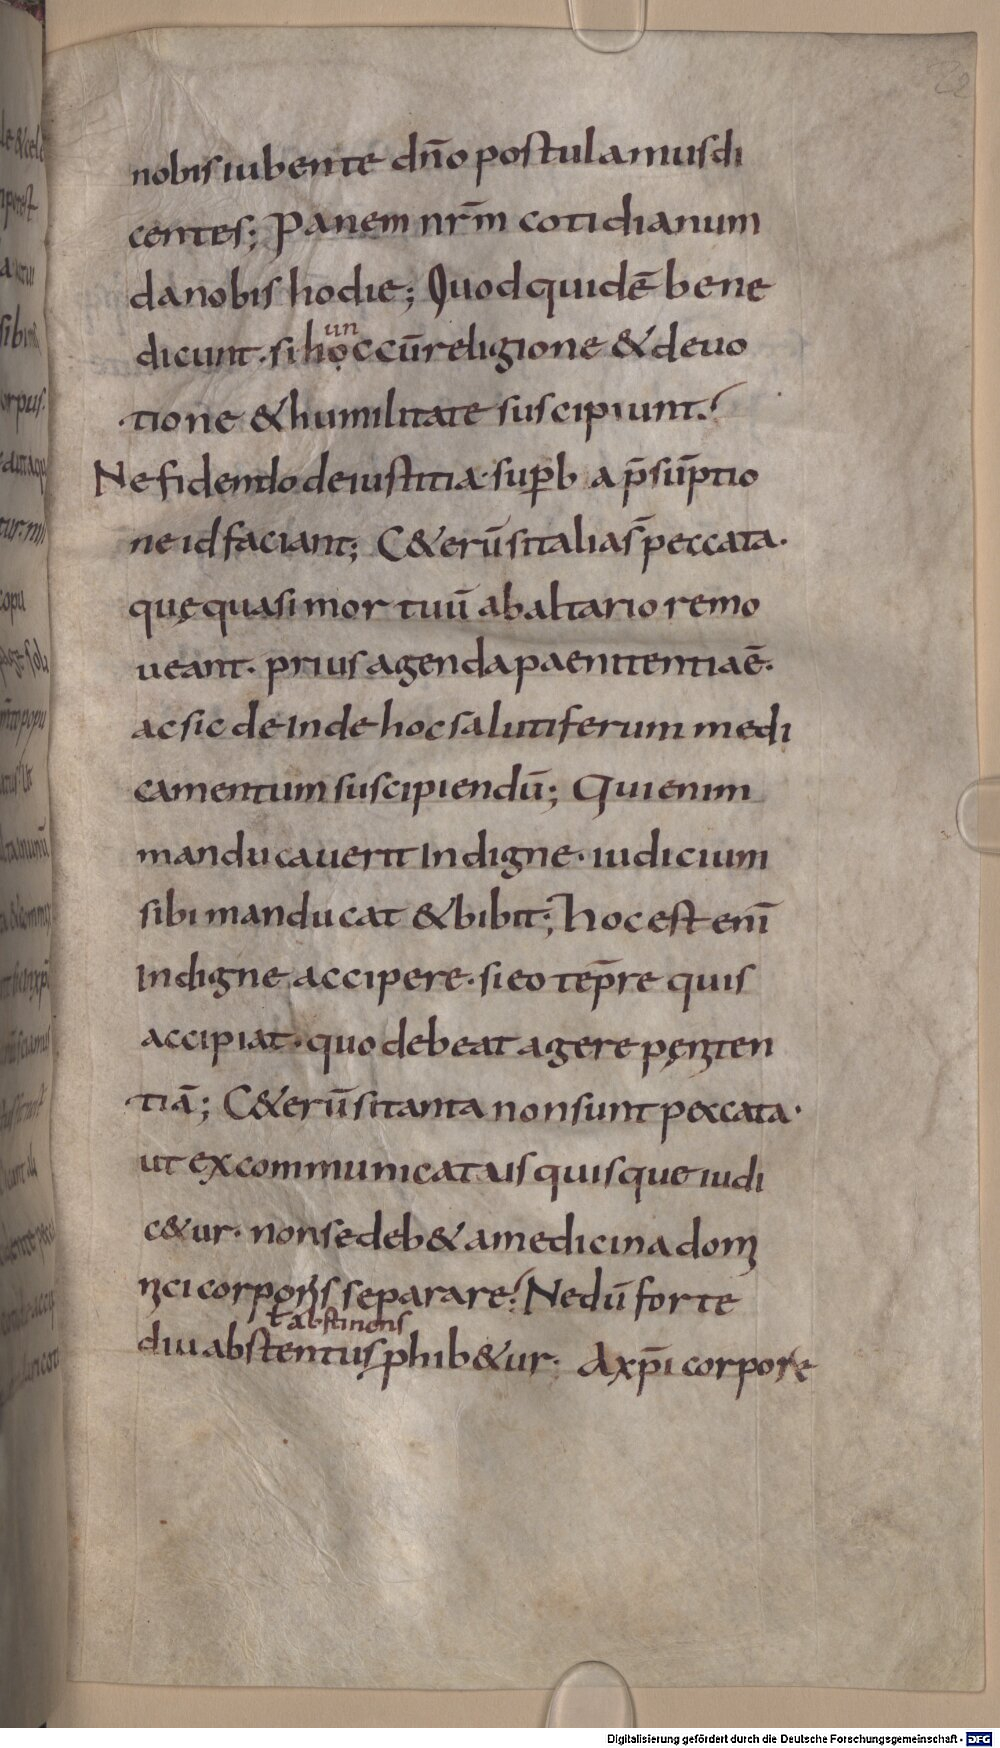 22
nobis iubente dn̄o postulamus di
centes; Panem nr̄m cotidianum
da nobis hodie; Quod quidē bene
dicunt · si hoc cū religione & deuo
un
tione & humilitate suscipiunt.
Ne fidendo de iustitia · sup̄b a p̄sūptio
ne id faciant; C&erū si talia s̄ peccata ·
quę quasi mortuū ab altario remo
ueant · prius agenda paenitentia ē ·
ac sic deinde hoc salutiferum medi
camentum suscipiendū; Qui enim
manducauerit Indigne · iudicium
sibi manducat & bibit; hoc est enī
Indigne accipere · si eo tēp̄re quis
accipiat · quo debeat agere pęniten
tiā; C&erū si tanta non sunt peccata ·
ut excommunicatus quisque iudi
c&ur · non se deb& a medicina domi
nici corporis separare; Ne dū forte
ƚ abstinens
diu abstentus phib&ur · A xp̄i corpore
Digitalisierung gefördert durch die Deutsche Forschungsgemeinschaft - DFG